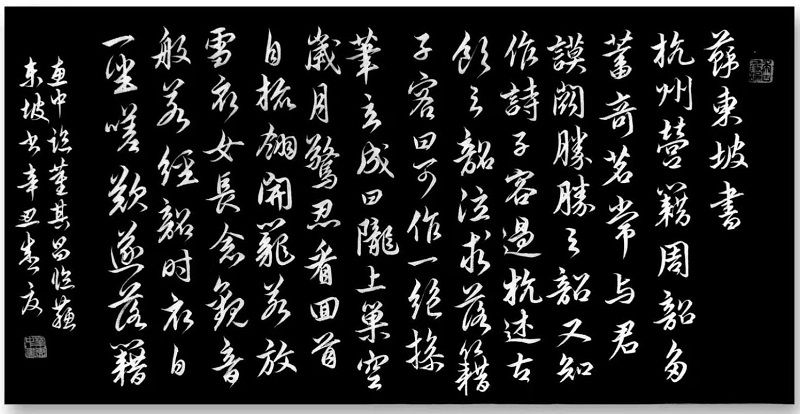 蘇東坡書
杭州營籍周韶多
蓄奇茗常与君
謨闘勝勝之韶又知
作詩子容過杭述古
飲之韶泣求落籍
子容曰可作一絕援
筆立成曰隴上巢空
歲月驚忍看回首
自梳翎開籠若放
雪衣女長念觀音
般若經韶时衣白
一坐嗟歎遂落籍
中临董其昌临蘇
东坡书辛丑